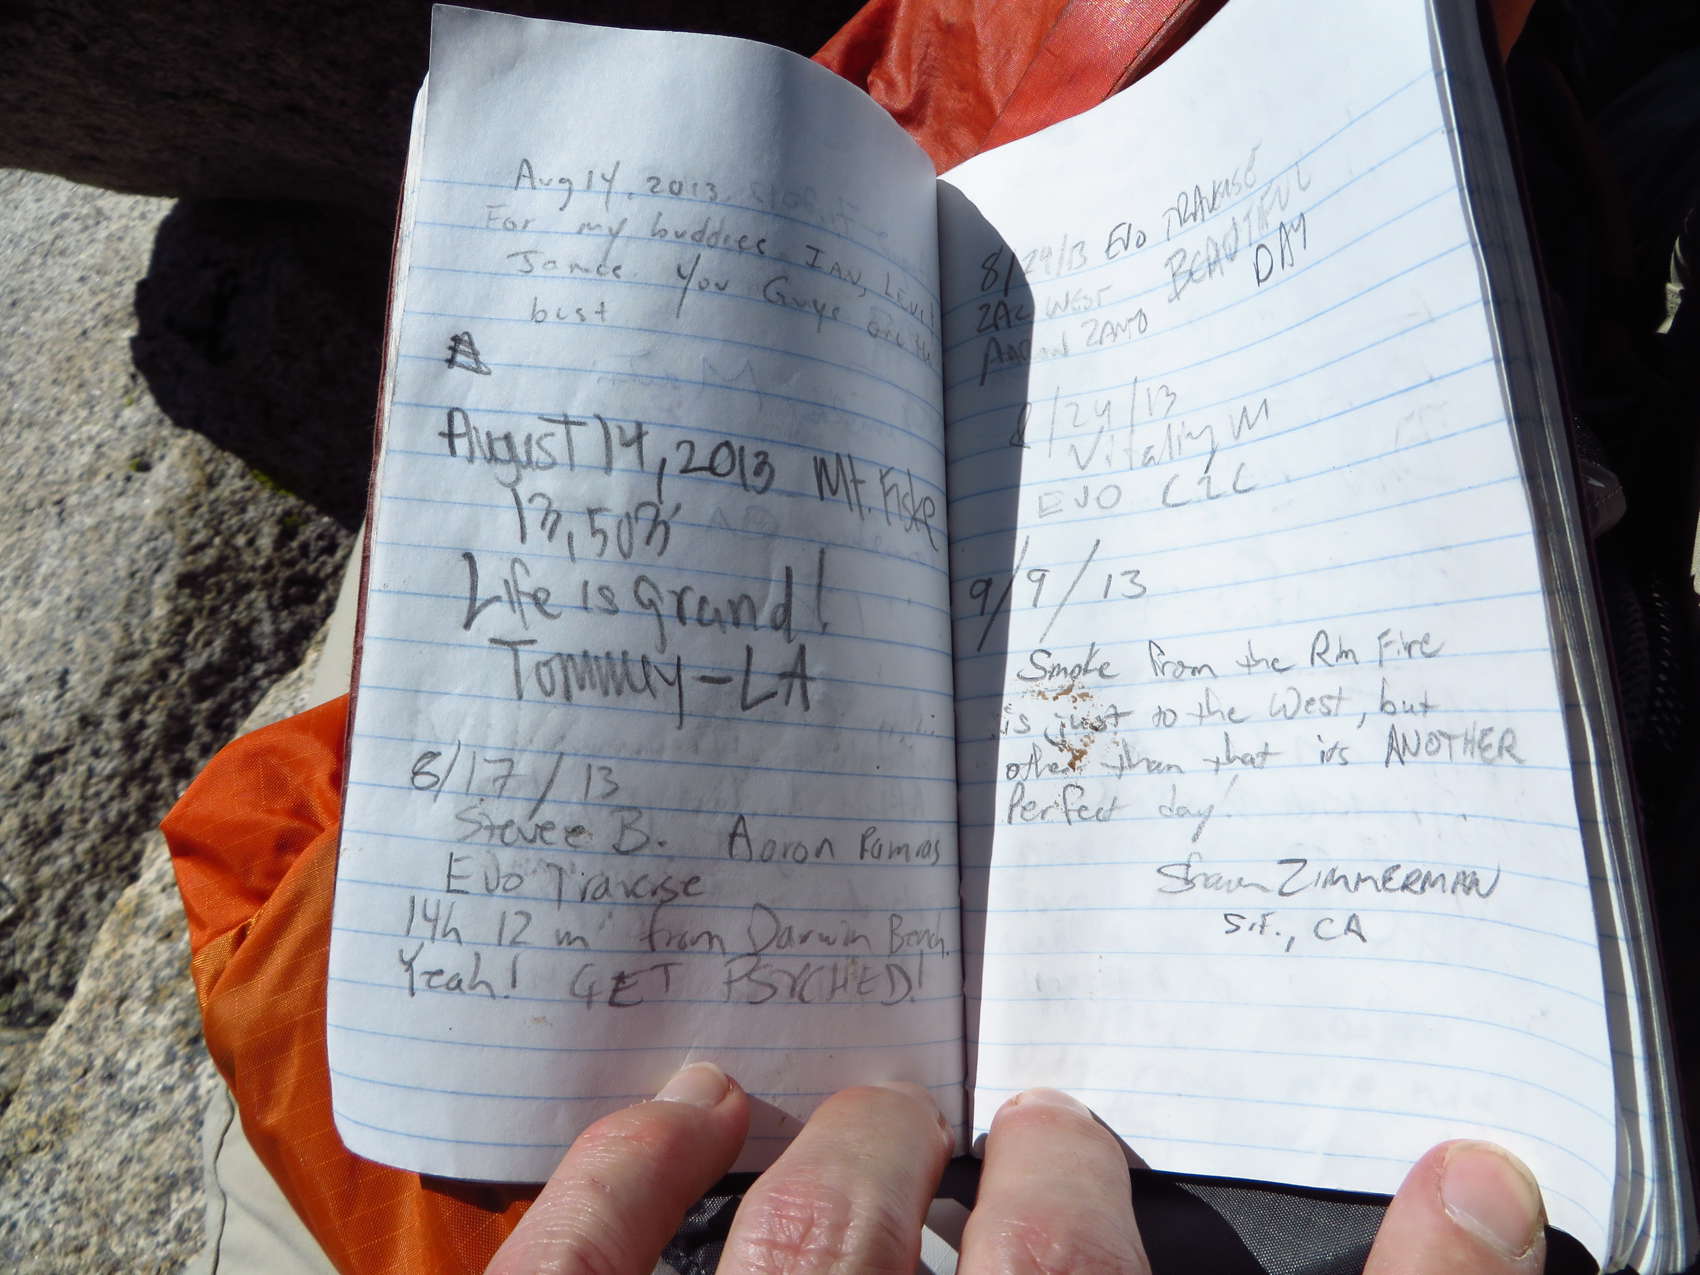 Aug 14, 2013.
For my buddies Ian, Levi
James. You Guys are the
best
August 14, 2013 Mt. Fiske
13,503'
Life is grand!
Tommy-LA
8/17/13
Stevee B. Aaron Ramras
EVO Traverse
14h 12 m from Darwin Bench.
Yeah! GET PSYCHED!
8/24/13 EVO TRAVERSE
ZAC WEST BEAUTIFUL
ZANTO DAY
8/24/13
Vitaliy M
EVO C2C
9/9/13
Smoke from the Rim Fire
is just to the West, but
other than that its ANOTHER
Perfect day!
Shawn ZIMMERMAN
S.F., CA